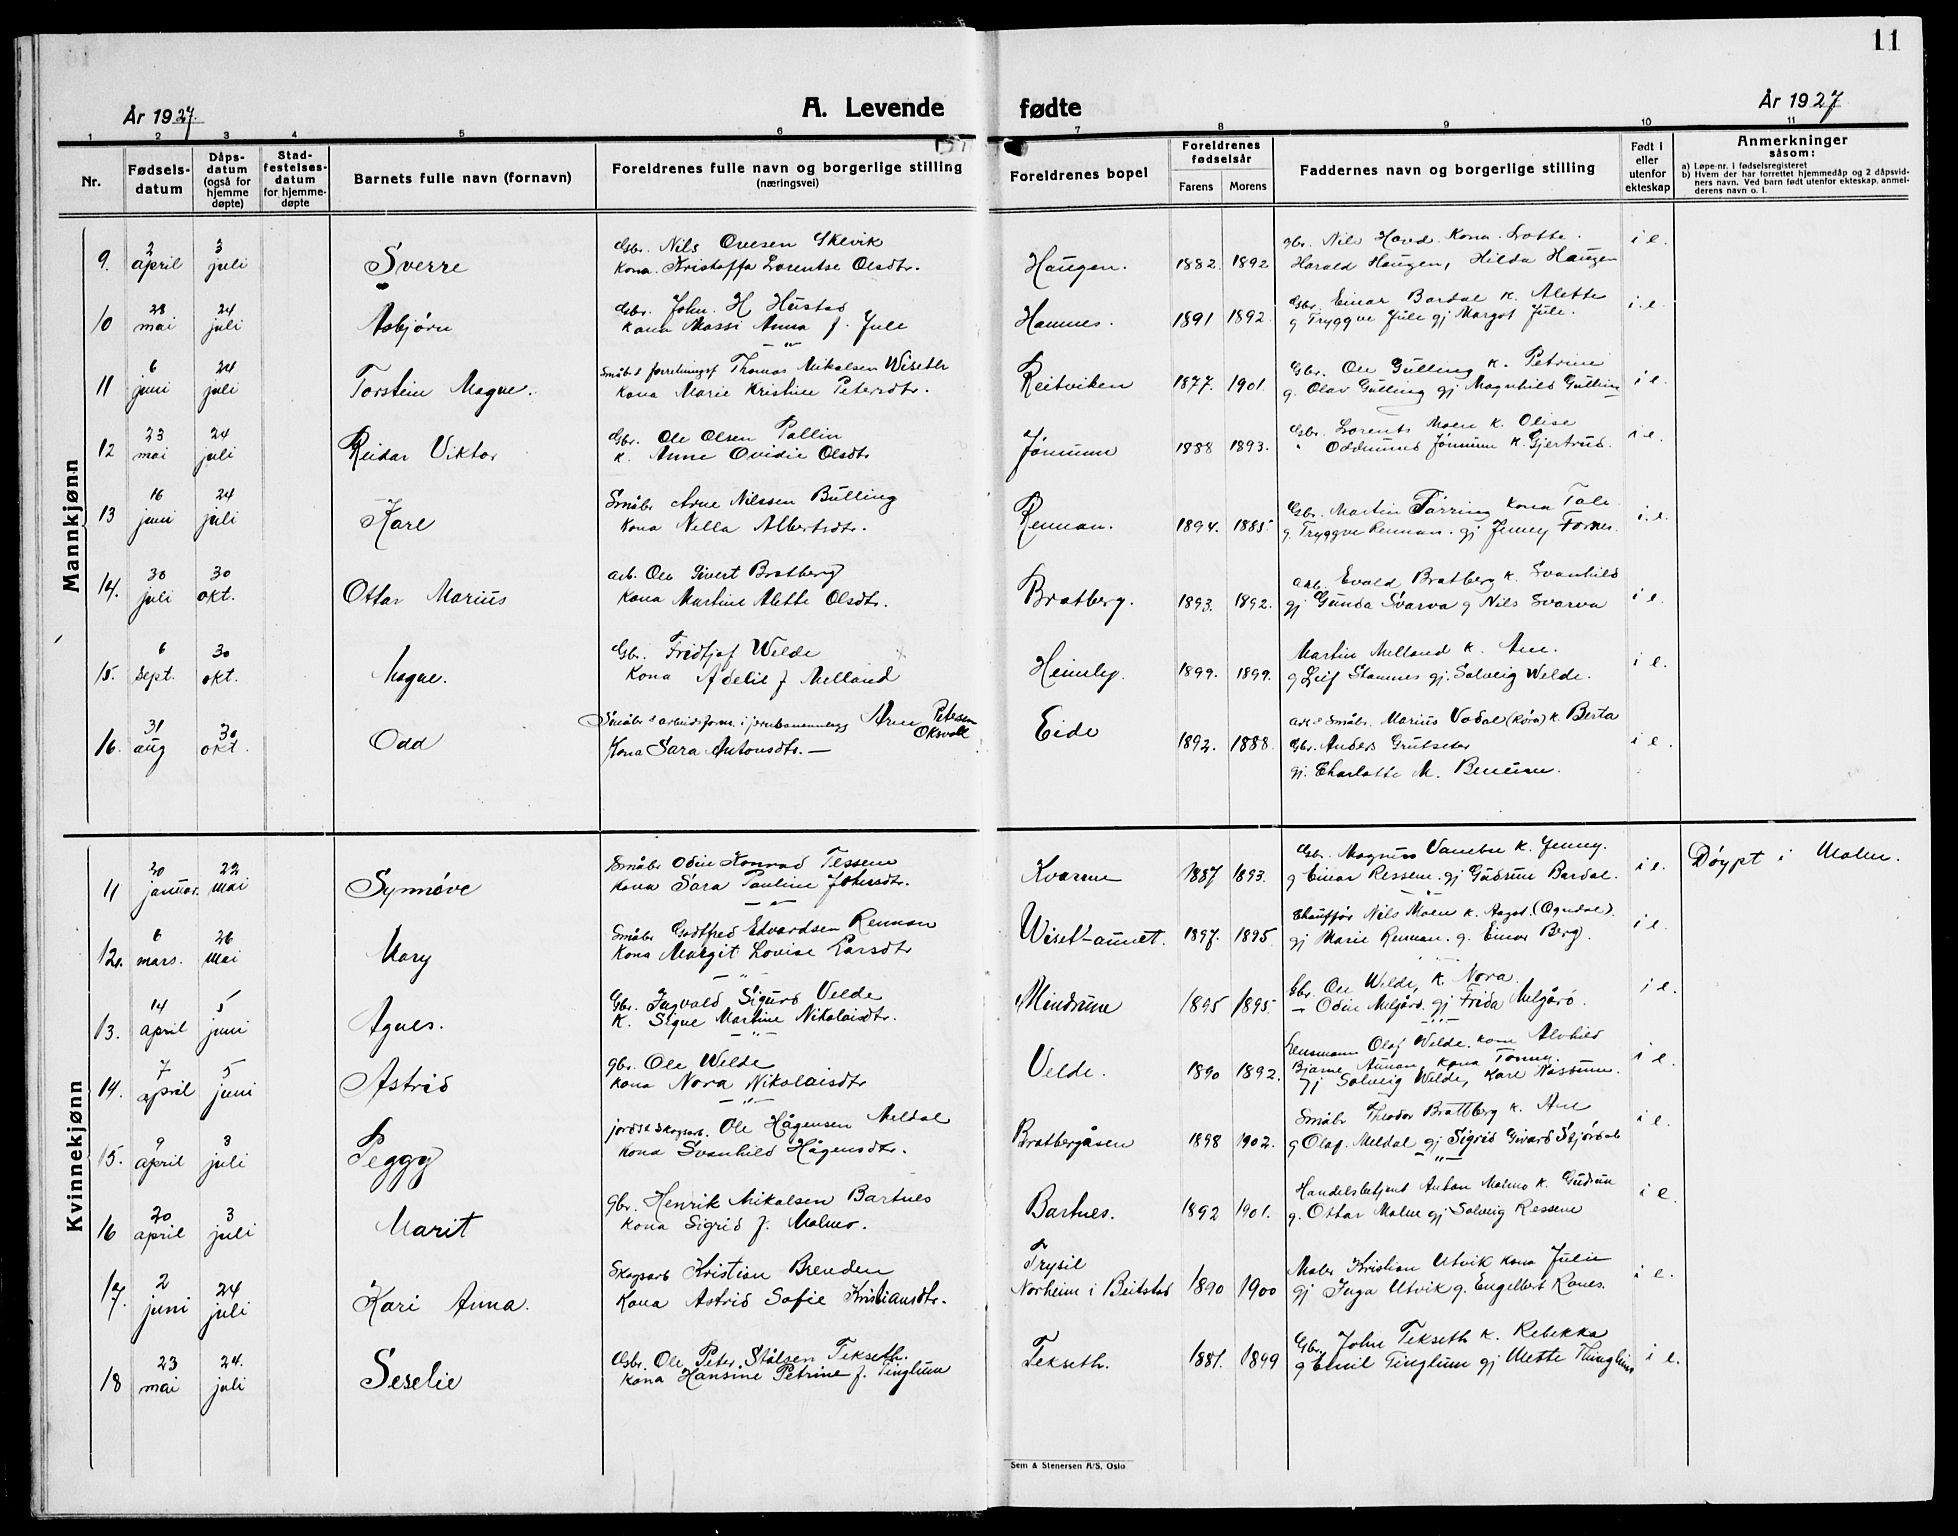 11
År 1927
A. Levende fødte
År 1927
1 2 3 4 5 6 7 8 9 10 11
Nr.
Fødsels-
datum
Dåps-
datum
(også for
hjemme
døpte)
Stad-
festelses-
datum
for hjemme-
døpte
Barnets fulle navn (fornavn)
Foreldrenes fulle navn og borgerlige stilling
(næringsvei)
Foreldrenes bopel
Foreldrenes
fødselsår
Farens Morens
Faddernes navn og borgerlige stilling
Født i
eller
utenfor
ekteskap
Anmerkninger
såsom:
a) Løpe-nr. i fødselsregisteret
b) Hvem der har forrettet hjemmedåp og 2 dåpsvid-
ners navn. Ved barn født utenfor ekteskap, anmel-
derens navn o. l.
Mannkjønn
9. 2 april 3 juli Sverre
Gbr. Nils Ovesen Skevik
Kona. Kristoffa Lorentse Olsdtr.
Haugen. 1882. 1892
gbr. Nils Havd. Kona Lotte.
Harald Haugen, Hilda Haugen
i e.
10 28 mai 24 juli Asbjørn
Gbr. John. H Hustad
Kona Massi Anna f. Jule
Hamnes. 1891 1892.
Gbr. Einar Bardal K. Alette
g Tryggve Jule gj Margot Jule.
i. e.
11 6 juni 24 juli Torstein Magne.
Småbr & forretningsf Thomas Mikalsen Wiseth
Kona Marie Kristine Petersdtr.
Reitviken 1877. 1901.
Gbr. Ole Gulling K. Petrine
g. Olav Gulling gj Magnhild Gulling
i e.
12 23 mai 24 juli Reidar Viktor
Gbr. Ole Olsen Pallin
K. Anne Ovidie Olsdtr
Jønnum 1888 1893.
Gbr. Lorents Moen K. Olise
" Oddmund Jønnum K. Gjertrud.
i e.
13 16 juni 24 juli Kåre
Småbr Arne Nilssen Bulling
Kona Nella Albertsdtr.
Rennan. 1894. 1885
Gbr. Martin Førring Kona Tale
g. Tryggve Rennan. gj Jenney Fornes.
i. e.
14. 30 juli 30 okt. Ottar Marius
arb. Ole Sivert Bratberg
Kona Martine Alette Olsdtr.
Bratberg. 1893. 1892.
arb. Evald Bratberg K. Svanhild
gj Gunda Svarva g Nils Svarva
i e.
15. 6 sept. 30 okt. Magne.
Gbr. Fridtjof Welde
Kona Adelie f Melland
Heimly. 1899. 1899.
Martin Melland K. Ane.
g Leif Stamnes gj. Solveig Welde.
i e.
16. 31 aug 30 okt. Odd
Småbr & arbeidsform. i jernbaneanlegg Arne Petersen
Oksvold
Kona Sara Antonsdtr. —
Eide 1892. 1888.
arb & småbr. Marius Vodal (Røra) K. Berta
Gbr. Anders Grutseter
gj. Charlotte M. Benum.
i e.
Kvinnekjønn
11 30 januar. 22 mai Synnøve
Småbr Odin Konrad Tessem
Kona Sara Pauline Johnsdtr.
Kvarme 1887 1893.
Gbr. Magnus Vanebu K. Jenny.
g Einar Ressem. gj Gudrun Bardal.
i e. Døypt i Malm.
12. 6 mars. 26 mai Mary
Småbr Godtfred Edvardsen Rennan
Kona Margit Lovise Larsdtr
Wiset-aunet. 1897. 1895.
Chauffør Nils Moen K. Aagot. (Ogndal).
gj Marie Rennan. g. Einar Berg.
i e.
13. 14 april 5 juni Agnes.
Gbr. Ingvald Sigurd Velde
K. Signe Martine Nikolaisdtr.
Mindrum 1895 1895.
Gbr. Ole Welde, K. Nora
— Odin Melgård. gj Frida Melgård.
i e.
14. 7 april 5 juni Astrid
gbr. Ole Welde
Kona Nora Nikolaisdtr
Velde. 1890 1892.
Lensmann Olaf Welde. kone Alvhild
Bjarne Aunan Kona Tonny.
gj Solveig Welde, Karl Nossum.
i e.
15. 9 april 3 juli Peggy
jords & skogsarb. Ole Hågensen Meldal
Kona Svanhild Hågensdtr.
Bratbergåsen 1898 1902.
Småbr Theodor Brattberg K. Ane
g Olaf. Meldal gj Sigrid Sivard Stjørdal
i e.
16 20 april 3 juli Marit
gbr. Henrik Mikalsen Bartnes
Kona Sigrid f. Malmo.
Bartnes. 1892 1901.
Handelsbetjent Anton Malmo K. Gudrun
g. Ottar Malm gj Solveig Ressem
i e.
17. 2 juni 24 juli Kari Anna.
Skogsarb Kristian Brenden
Kona Astrid Sofie Kristiansdtr.
Trysil
Norheim i Beitstad 1890 1900
Maler Kristian Utvik Kona Julie
gj Inga Utvik g. Engelbert Ranes.
i e.
18 23 mai 24. juli Seselie
Gbr. Ole Peter Stålsen Tekseth.
Kona Hansine Petrine f. Tinglum
Tekseth. 1881. 1899
Gbr John Tekseth K. Rebekka
g Emil Tinglum gj Mette Thinglum
i e.
Sem & Stenersen A/S, Oslo